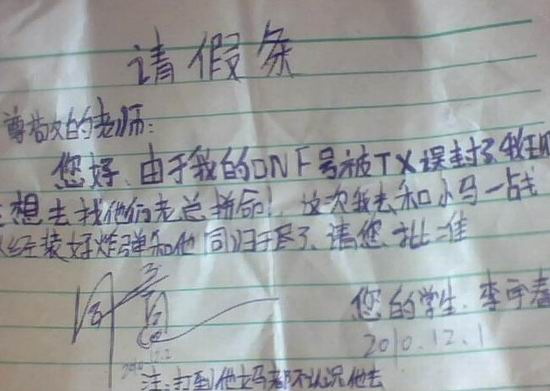 请假条
尊敬的老师:
您好,由于我的DNF号被TX误封了我现
在想去找他们老总拼命!这次我去和小马一战
经装好炸弹和他同归于尽了,请您批准
同意
您的学生.李
2010.12.2
2010.12.1
注:打到他妈都不认识他去